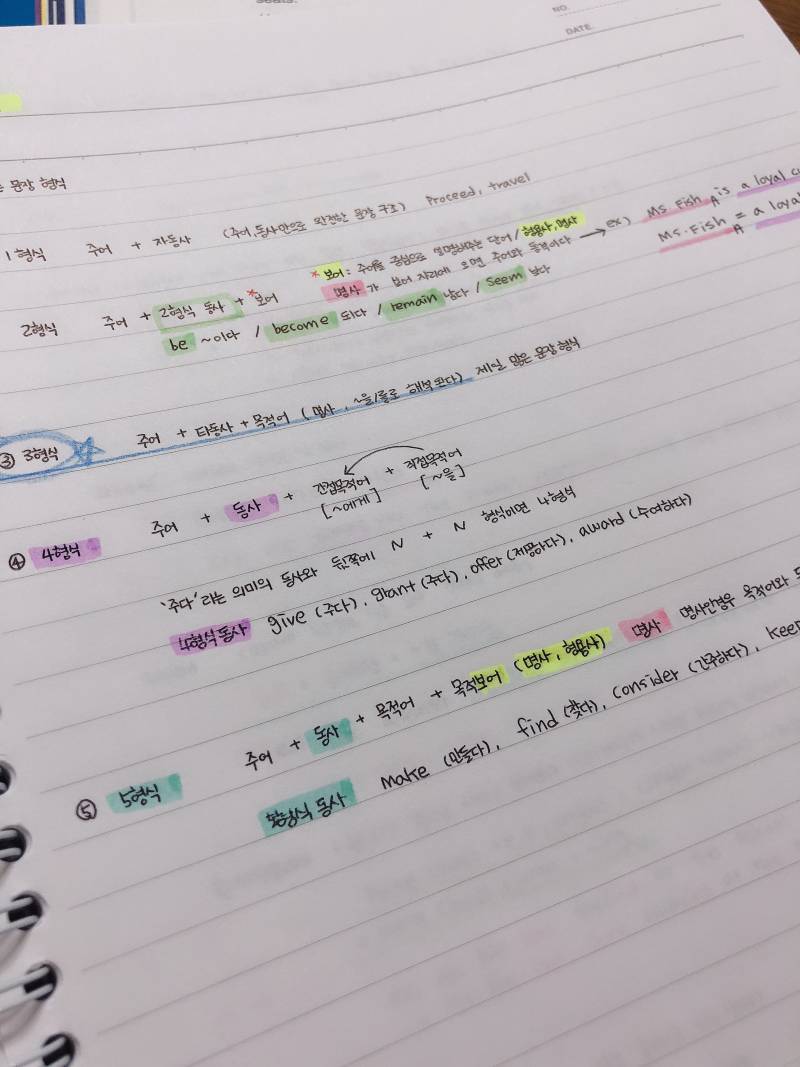 NO.
DATE
문장 형식
1형식 주어 + 자동사 (주어, 동사만으로 완전한 문장 구조) Proceed, travel
2형식 주어 + 2형식 동사 + *보어
* 보어 : 주어를 중심으로 설명해주는 단어 / 형용사, 명사
명사가 보어 자리에 오면 주어와 동격이다 → ex) Ms. Fish is a loyal
Ms. Fish = a loyal
be ~이다 / become 되다 / remain 남다 / seem
③ 3형식 주어 + 타동사 + 목적어 (명사, ~을/를로 해석된다) 제일 많은 문장 형식
④ 4형식 주어 + 동사 + 간접목적어 + 직접목적어
[~에게] [~을]
'주다'라는 의미의 동사와 뒤쪽에 N + N 형식이면 4형식
4형식동사 give (주다), grant (주다), offer (제공하다), award (수여하다)
⑤ 5형식 주어 + 동사 + 목적어 + 목적보어 (명사, 형용사) 명사 명사인경우 목적어와
5형식 동사 make (만들다), find (찾다), consider (간주하다), keep